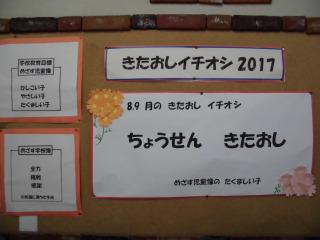 学校教育目標
めざす児童像
かしこい子
やさしい子
たくましい子
きたおしイチオシ 2017
8.9 月の きたおし イチオシ
ちょうせん きたおし
めざす児童像の たくましい子
めざす学校像
全力
挑戦
感謝